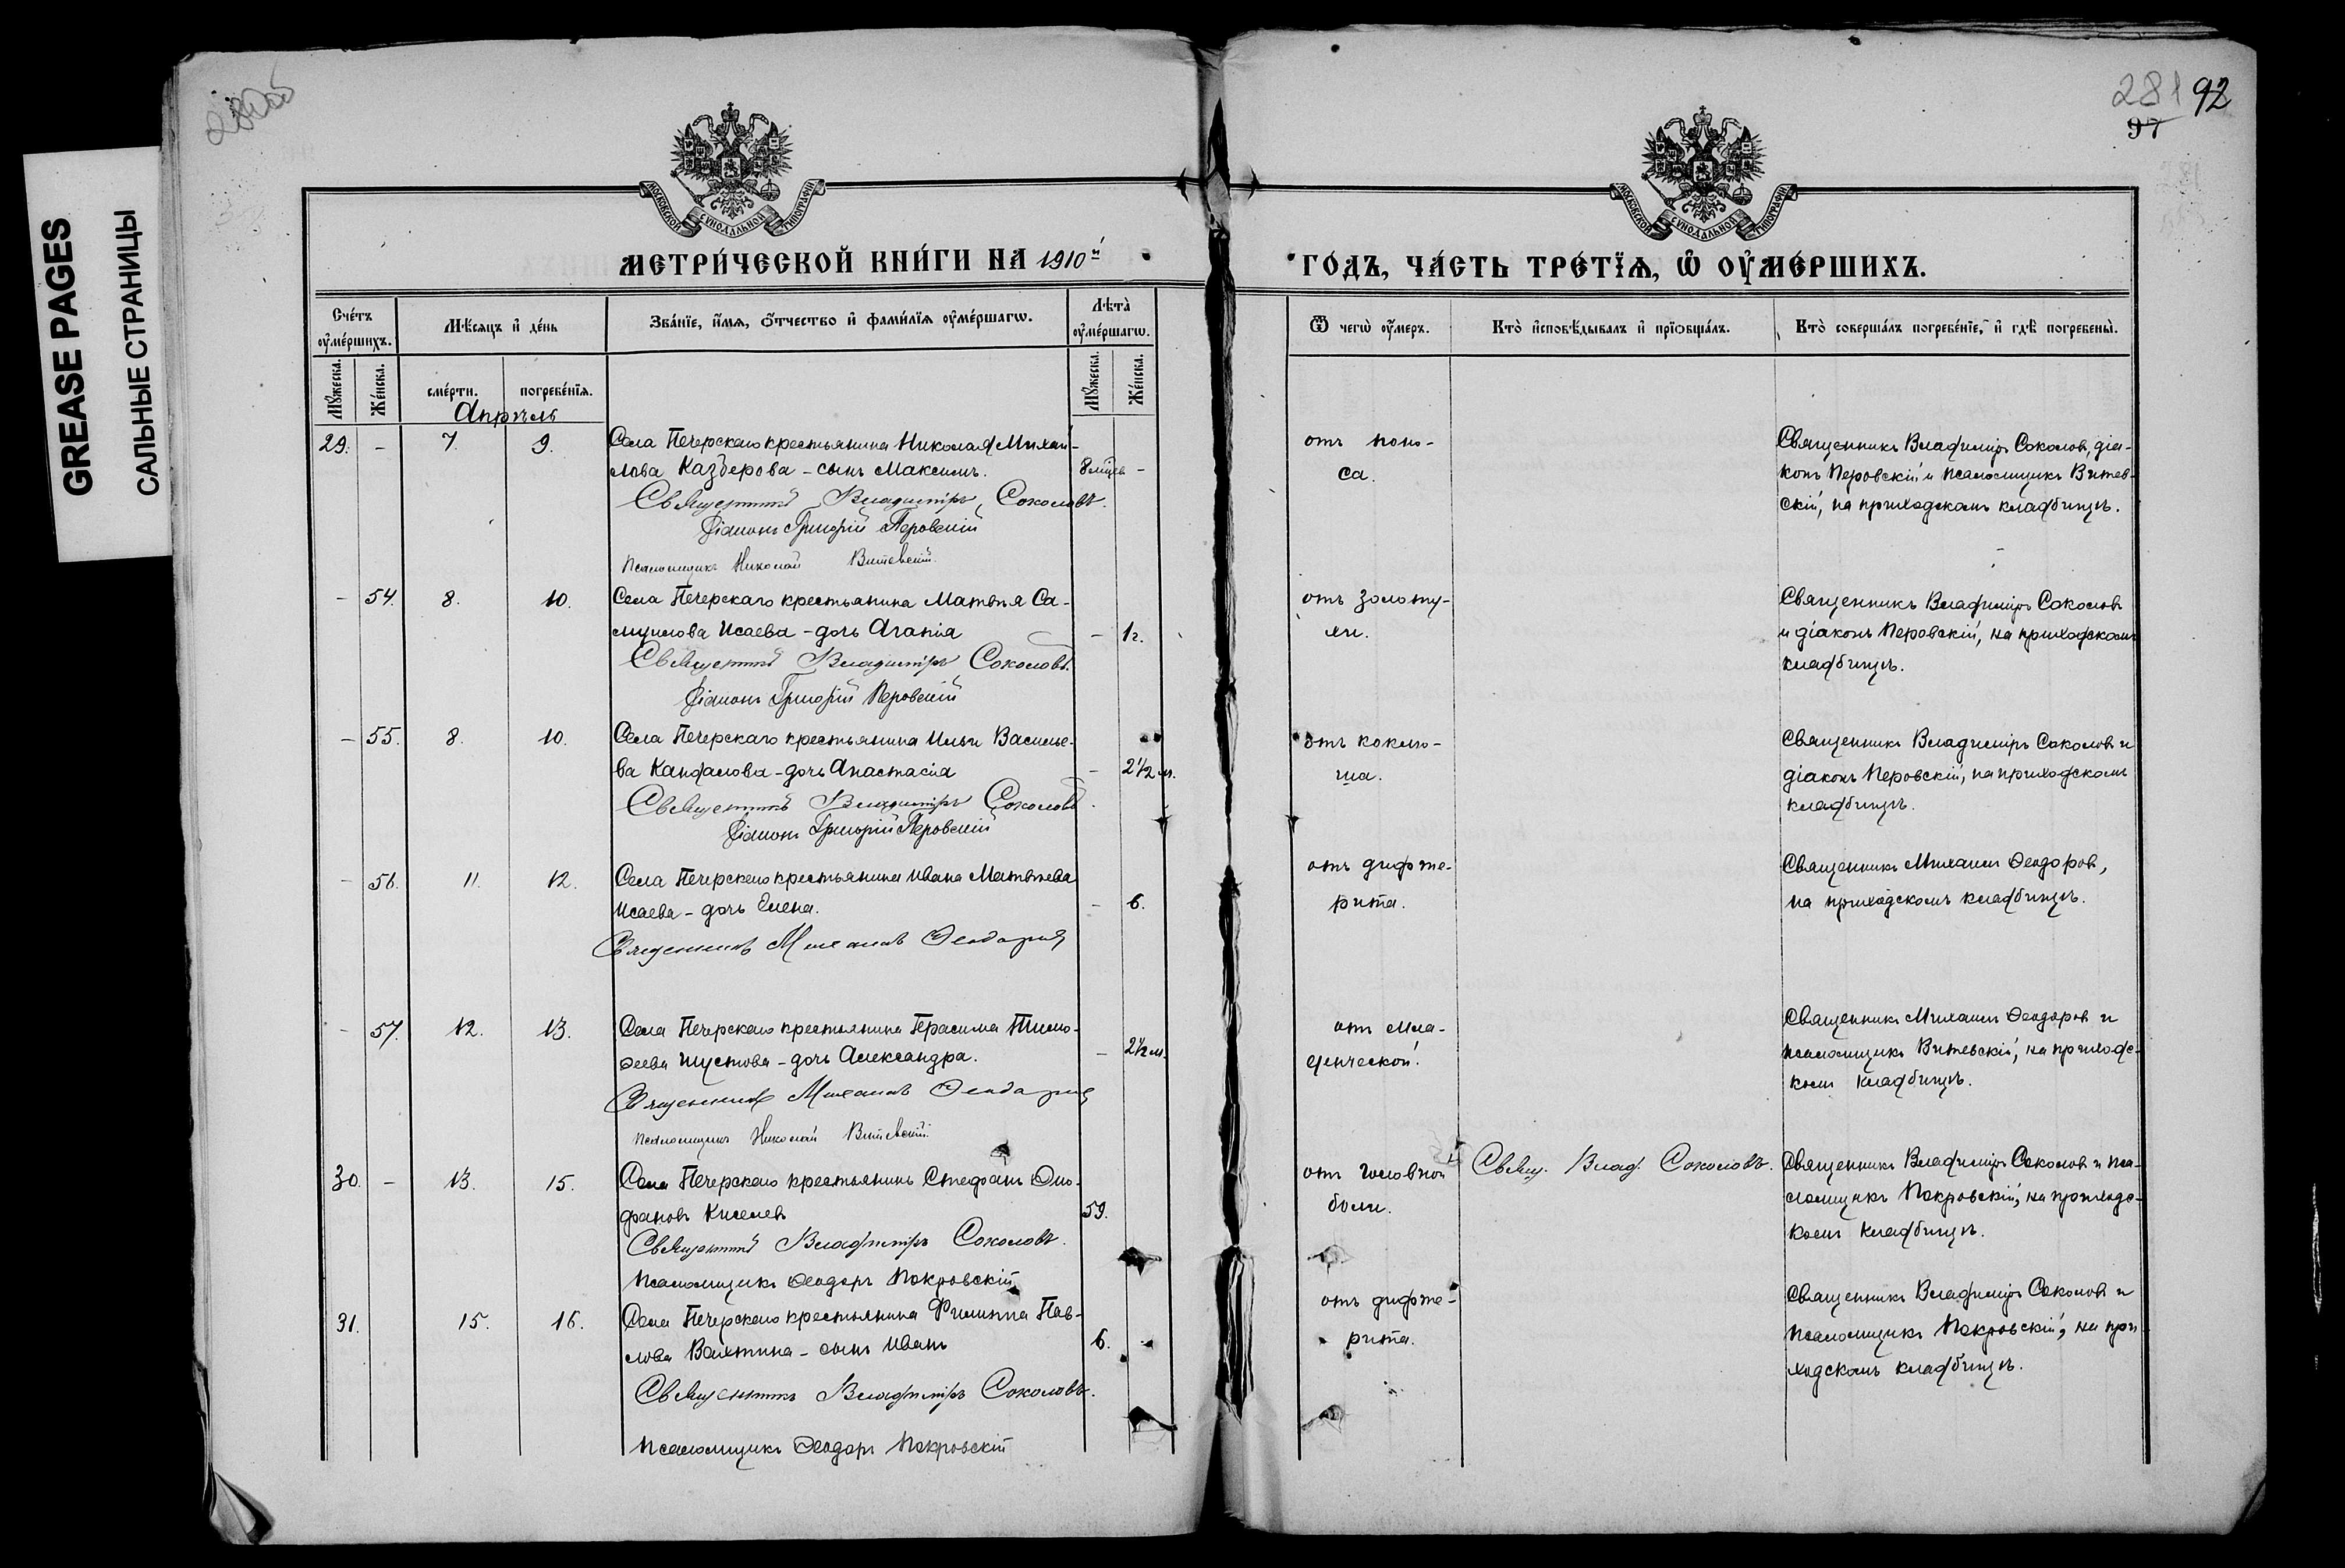 GREASE PAGES
САЛЬНЫЕ СТРАНИЦЫ
280об
281 92
97
МОСКОВСКОЙ СѴНОДАЛЬНОЙ ТИПОГРАФІИ
МОСКОВСКОЙ СѴНОДАЛЬНОЙ ТИПОГРАФІИ
МЕТРИ́ЧЕСКОЙ КНИ́ГИ НА 1910й
ГО́ДЪ, ЧА́СТЬ ТРЕ́ТІѦ, Ѡ ОУ҆МЕ́РШИХЪ.
Сче́тъ оу҆ме́ршихъ.
Мꙋ́жеска.
Же́нска.
Мѣ́сѧцъ и҆ де́нь
сме́рти.
погребе́нїѧ.
Зва́нїе, и҆́мѧ, ѻ҆́тчество и҆ фами́лїѧ оу҆ме́ршагѡ.
Лѣ́та оу҆ме́ршагѡ.
Мꙋ́жеска.
Же́нска.
Ѿ чегѡ̀ оу҆́меръ.
Кто̀ и҆сповѣ́дывалъ и҆ прїѡбща́лъ.
Кто̀ соверша́лъ погребе́нїе, и҆ гдѣ̀ погребены̀.
Апрѣль
29. - 7. 9. Села Печерскаго крестьянина Николая Михаи-
лова Казберова - сынъ Максимъ. 8 мцѣв -
Священникъ Владиміръ Соколовъ.
Діаконъ Григорій Перовскій
Псаломщикъ Николай Витевскій.
отъ поно-
са.
Священникъ Владиміръ Соколовъ, діа-
конъ Перовскій и псаломщикъ Витев-
скій, на приходскомъ кладбищѣ.
- 54. 8. 10. Села Печерскаго крестьянина Матвѣя Са-
муилова Исаева - дочь Агапія - 1г.
Священникъ Владиміръ Соколовъ.
Діаконъ Григорій Перовскій
отъ золоту-
хи.
Священникъ Владиміръ Соколовъ
и діаконъ Перовскій, на приходскомъ
кладбищѣ.
- 55. 8. 10. Села Печерскаго крестьянина Ильи Василье-
ва Кандалова - дочь Анастасія - 2½ м.
Священникъ Владиміръ Соколовъ.
Діаконъ Григорій Перовскій
отъ коклю-
ша.
Священникъ Владиміръ Соколовъ и
діаконъ Перовскій, на приходскомъ
кладбищѣ.
- 56. 11. 12. Села Печерскаго крестьянина Ивана Матвѣева
Исаева - дочь Елена. - 6.
Священникъ Михаилъ Ѳеодоровъ
отъ дифте-
рита.
Священникъ Михаилъ Ѳеодоровъ,
на приходскомъ кладбищѣ.
- 57. 12. 13. Села Печерскаго крестьянина Герасима Тимо-
ѳеева Шустова - дочь Александра. - 2½ м.
Священникъ Михаилъ Ѳеодоровъ
Псаломщикъ Николай Витевскій.
отъ мла-
денческой.
Священникъ Михаилъ Ѳеодоровъ и
псаломщикъ Витевскій, на приходс-
комъ кладбищѣ.
30. - 13. 15. Села Печерскаго крестьянинъ Стефанъ Ѳео-
фановъ Киселевъ 59.
Священникъ Владиміръ Соколовъ.
Псаломщикъ Ѳеодоръ Покровскій
отъ головной
боли.
Свящ. Влад. Соколовъ.
Священникъ Владиміръ Соколовъ и пса-
ломщикъ Покровскій, на приходс-
комъ кладбищѣ.
31. 15. 16. Села Печерскаго крестьянина Филиппа Пав-
лова Вахтина - сынъ Иванъ 6. -
Священникъ Владиміръ Соколовъ.
Псаломщикъ Ѳеодоръ Покровскій
отъ дифте-
рита.
Священникъ Владиміръ Соколовъ и
псаломщикъ Покровскій, на при
ходскомъ кладбищѣ.